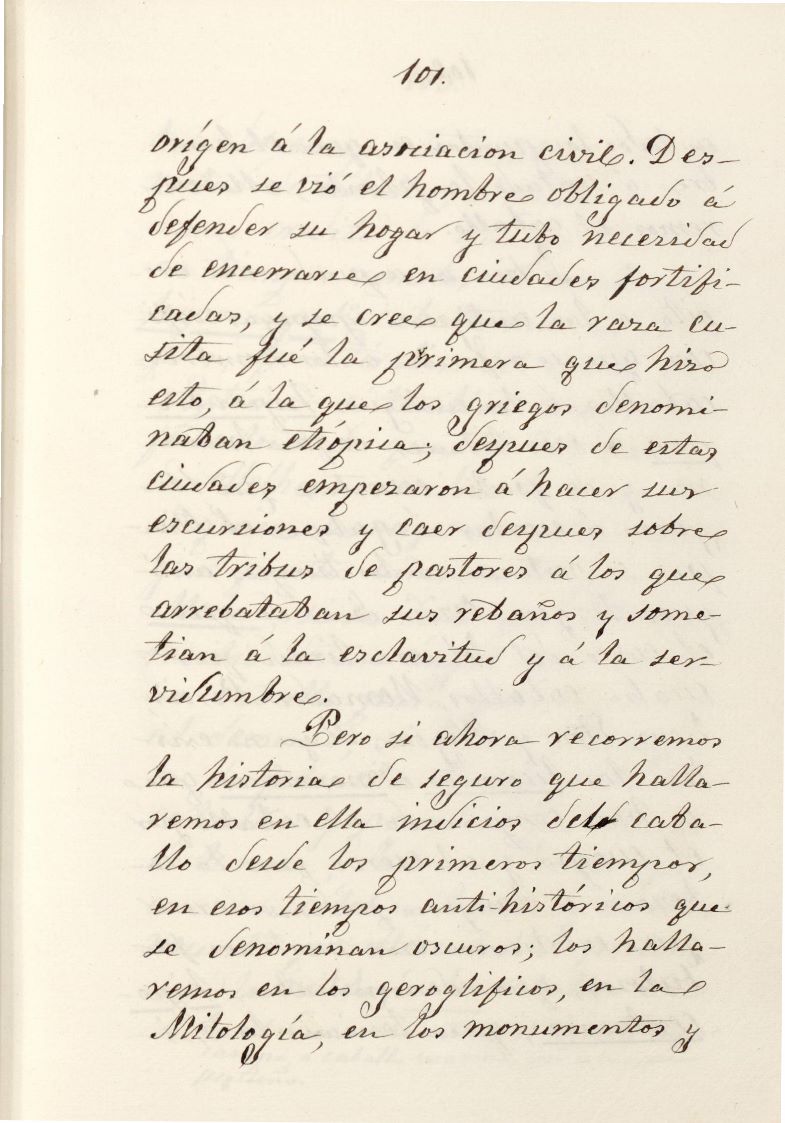 101.
orígen á la asociacion civil. Des-
pues se vió el hombre obligado á
defender su hogar y tubo necesidad
de encerrarse en ciudades fortifi-
cadas, y se cree que la raza cu-
sita fué la primera que hizo
esto, á la que los griegos denomi-
naban etiópica; despues de estas
ciudades empezaron á hacer sus
escursiones y caer despues sobre
las tribus de pastores á los que
arrebataban sus rebaños y some-
tian á la esclavitud y á la ser-
vidumbre.
Pero si ahora recorremos
la historia de seguro que halla-
remos en ella indicios del caba-
llo desde los primeros tiempos,
en esos tiempos anti-históricos que
se denominan oscuros; los halla-
remos en los geroglificos, en la
Mitología, en los monumentos y